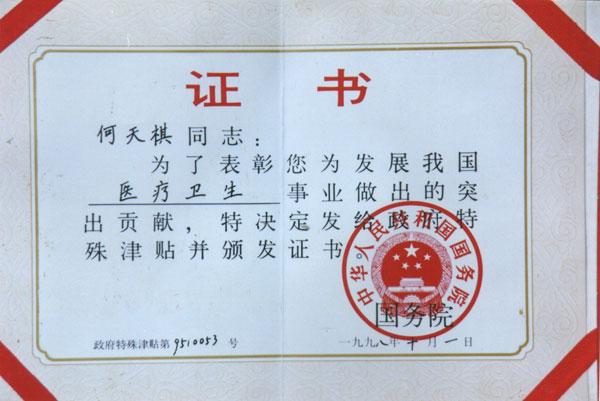 证书
何天棋同志:
为了表彰您为发展我国
医疗卫生事业做出的突
出贡献,特决定发给政府特
殊津贴并颁发证书。
中华人民共和国国务院
国务院
政府特殊津贴第9510053号
一九九八年十月一日